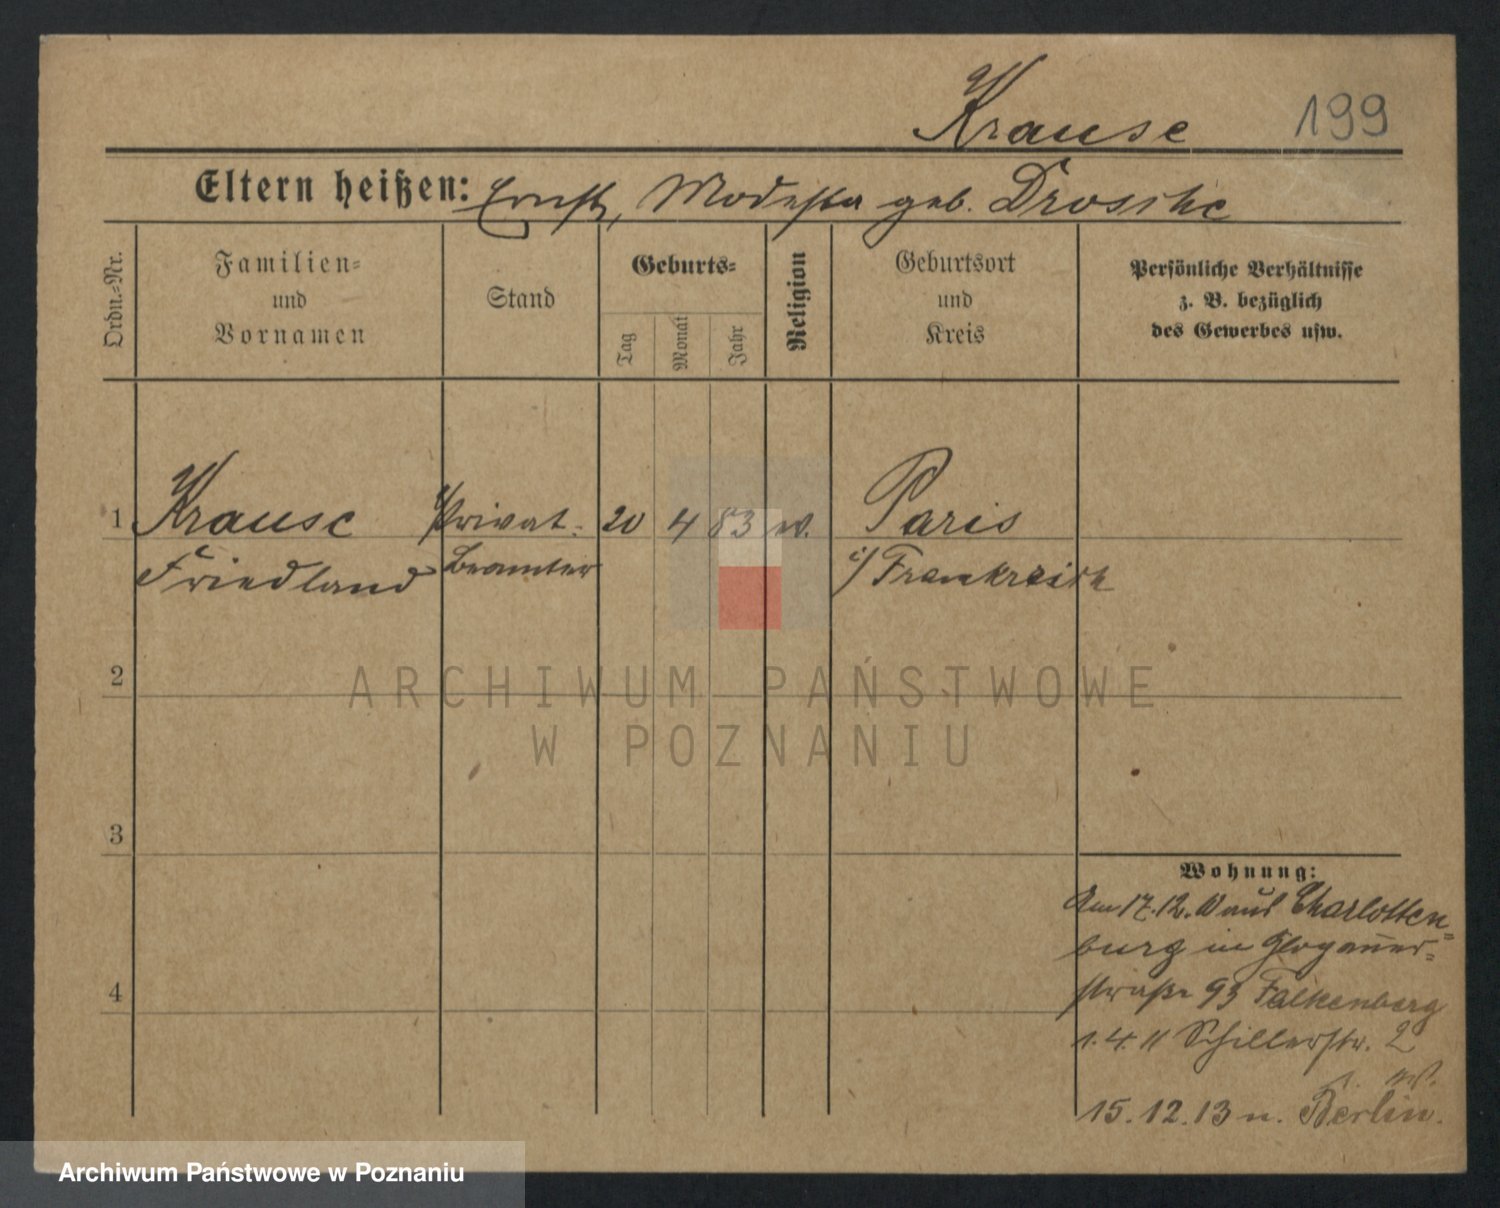 Krause 199
Eltern heißen: Ernst, Modesta geb. Droschke
Ordn.-Nr.
Familien-
und
Vornamen
Stand
Geburts-
Tag
Monat
Jahr
Religion
Geburtsort
und
Kreis
Persönliche Verhältnisse
z. B. bezüglich
des Gewerbes usw.
1 Krause Privat- 20 4 83 Paris
Friedland Beamter i/ Frankreich
2
3
4
Wohnung:
Am 17.12.10 aus Charlotten-
burg in Glogauer-
straße 93 Falkenberg
1.4.11 Schillerstr. 2
15.12.13 n. Berlin.
ARCHIWUM PAŃSTWOWE
W POZNANIU
Archiwum Państwowe w Poznaniu